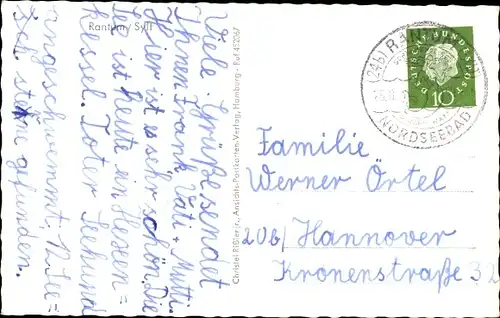 Rantum / Sylt
Viele Grüße sendet
Ihnen Frank, Vati + Mutti.
Hier ist es sehr schön. Die
See ist heute ein Hexen=
kessel. Toter Seehund
angeschwemmt. 12 See=
sterne gefunden.
Christel Rißler jr., Ansichts-Postkarten-Verlag, Hamburg - Ruf 452067
(24b) RAN
NORDSEEBAD
DEUTSCHE BUNDESPOST
10
Familie
Werner Örtel
20b/ Hannover
Kronenstraße 32